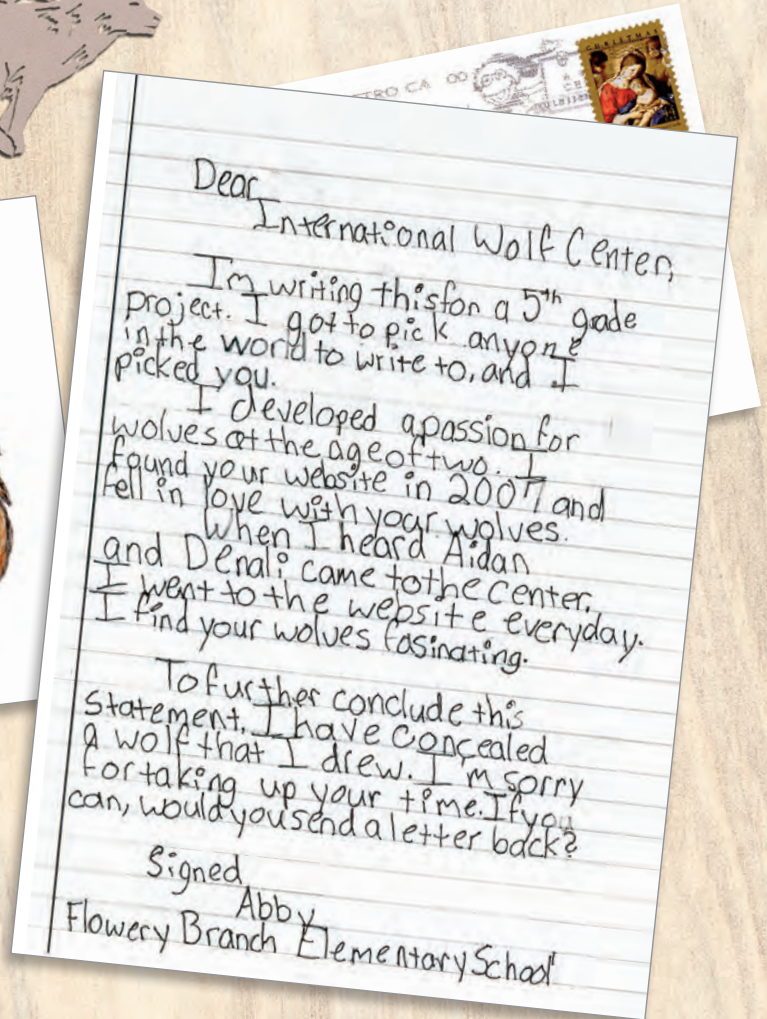 TRO CA 00
CHRISTMAS
Dear
International Wolf Center,
I'm writing this for a 5th grade
project. I got to pick anyone
in the world to write to, and I
picked you.
I developed a passion for
wolves at the age of two. I
found your website in 2007 and
fell in love with your wolves.
When I heard Aidan
and Denali came to the center,
I went to the website everyday.
I find your wolves fasinating.
To further conclude this
statement, I have concealed
a wolf that I drew. I'm sorry
for taking up your time. If you
can, would you send a letter back?
Signed
Abby
Flowery Branch Elementary School